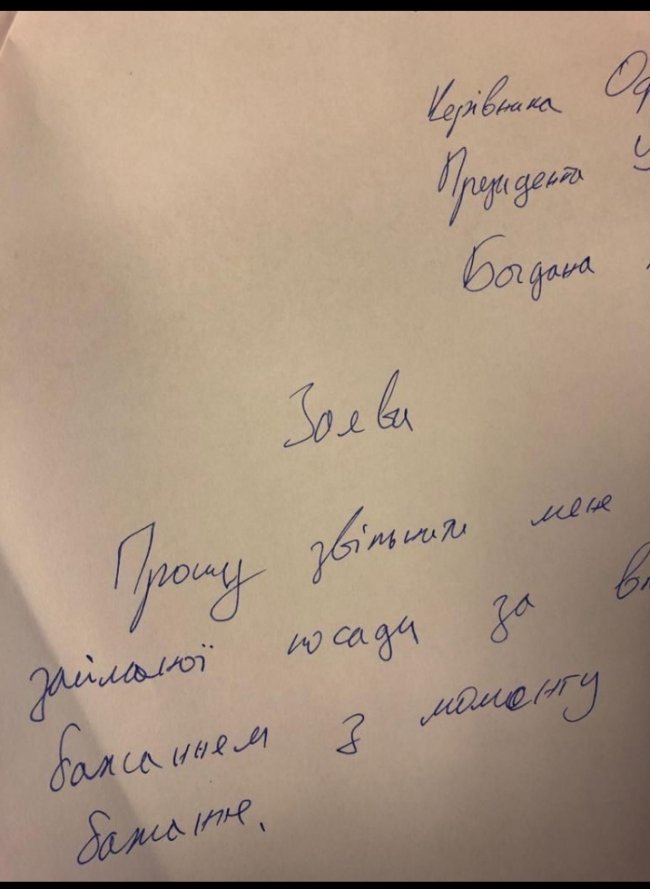 Керівника Оф
Президента У
Богдана
Заява
Прошу звільнити мене
займаної посади за вл
бажанням з моменту
бажання.